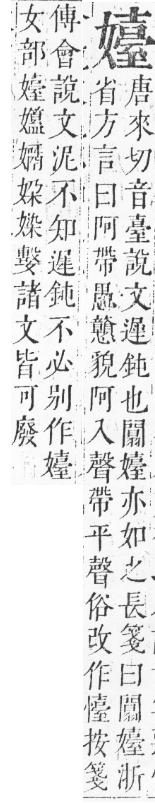 嬯
唐來切音臺說文遲鈍也闒嬯亦如之長箋曰闒嬯浙
省方言曰阿帶愚戇貌阿入聲帶平聲俗改作懛按箋
傳會說文泥不知遲鈍不必别作嬯
女部嬯諸文皆可廢